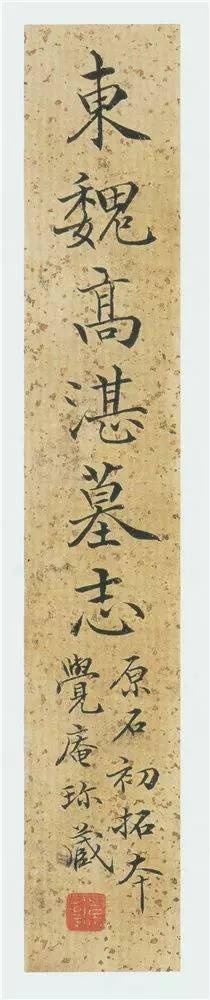 東魏高湛墓志
原石初拓本
覺庵珎藏